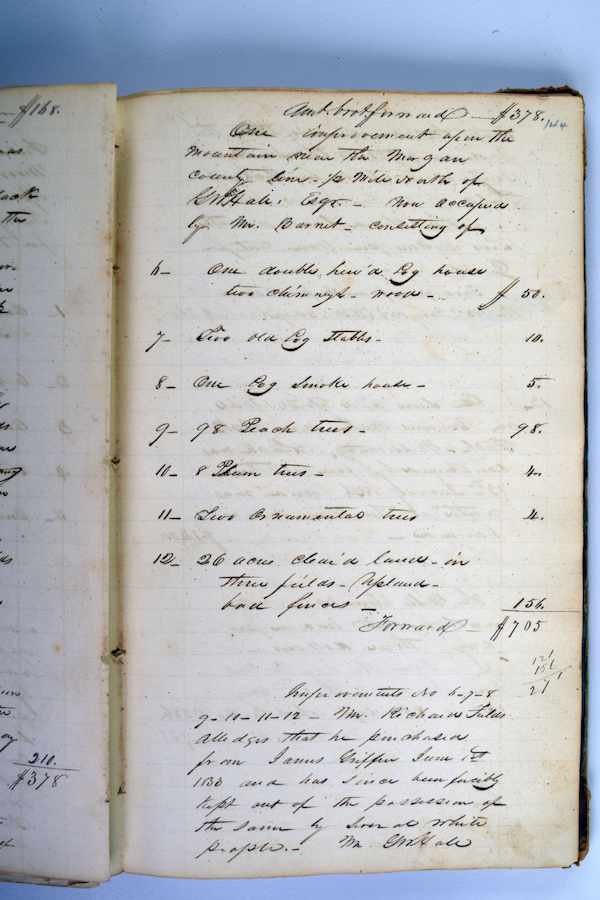 $168.
210.
$378
Amt. brot forward $378.
144
One improvement upon the
Mountain near the Morgan
County line - ½ Mile North of
GW Hale, Esqr. - Now occupied
by Mr. Barnet - Consisting of
6 - One double hew'd Log house
two chimneys - wood - $50.
7 - Two old Log Stables - 10.
8 - One Log Smoke house - 5.
9 - 98 Peach trees - 98.
10 - 8 Plum trees - 4.
11 - Two Ornamental trees 4.
12 - 26 acres clear'd land - in
three fields - Upland -
bad fences - 156.
Forward - $705
121
156
Improvements No 6-7-8
9-10-11-12 - Mr. Richard Fields
alledges that he purchased
from James Griffin June
and has since been forcibly
kept out of the possession of
the same by Several White
people. - Mr. GW Hale